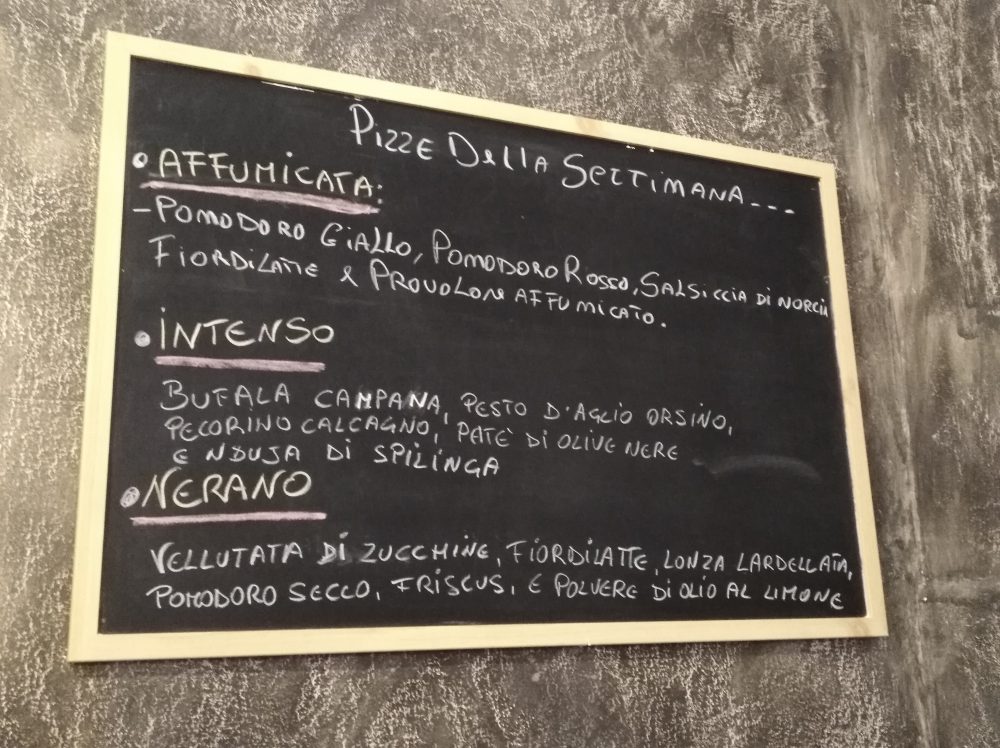 Pizze Della Settimana...
• AFFUMICATA:
- POMODORO GIALLO, POMODORO ROSSO, SALSICCIA DI NORCIA
FIORDILATTE & PROVOLONE AFFUMICATO.
• INTENSO
BUFALA CAMPANA, PESTO D'AGLIO ORSINO,
PECORINO CALCAGNO, PATE' DI OLIVE NERE
E NDUJA DI SPILINGA
• NERANO
VELLUTATA DI ZUCCHINE, FIORDILATTE, LONZA LARDELLATA,
POMODORO SECCO, FRISCUS, E POLVERE DI OLIO AL LIMONE